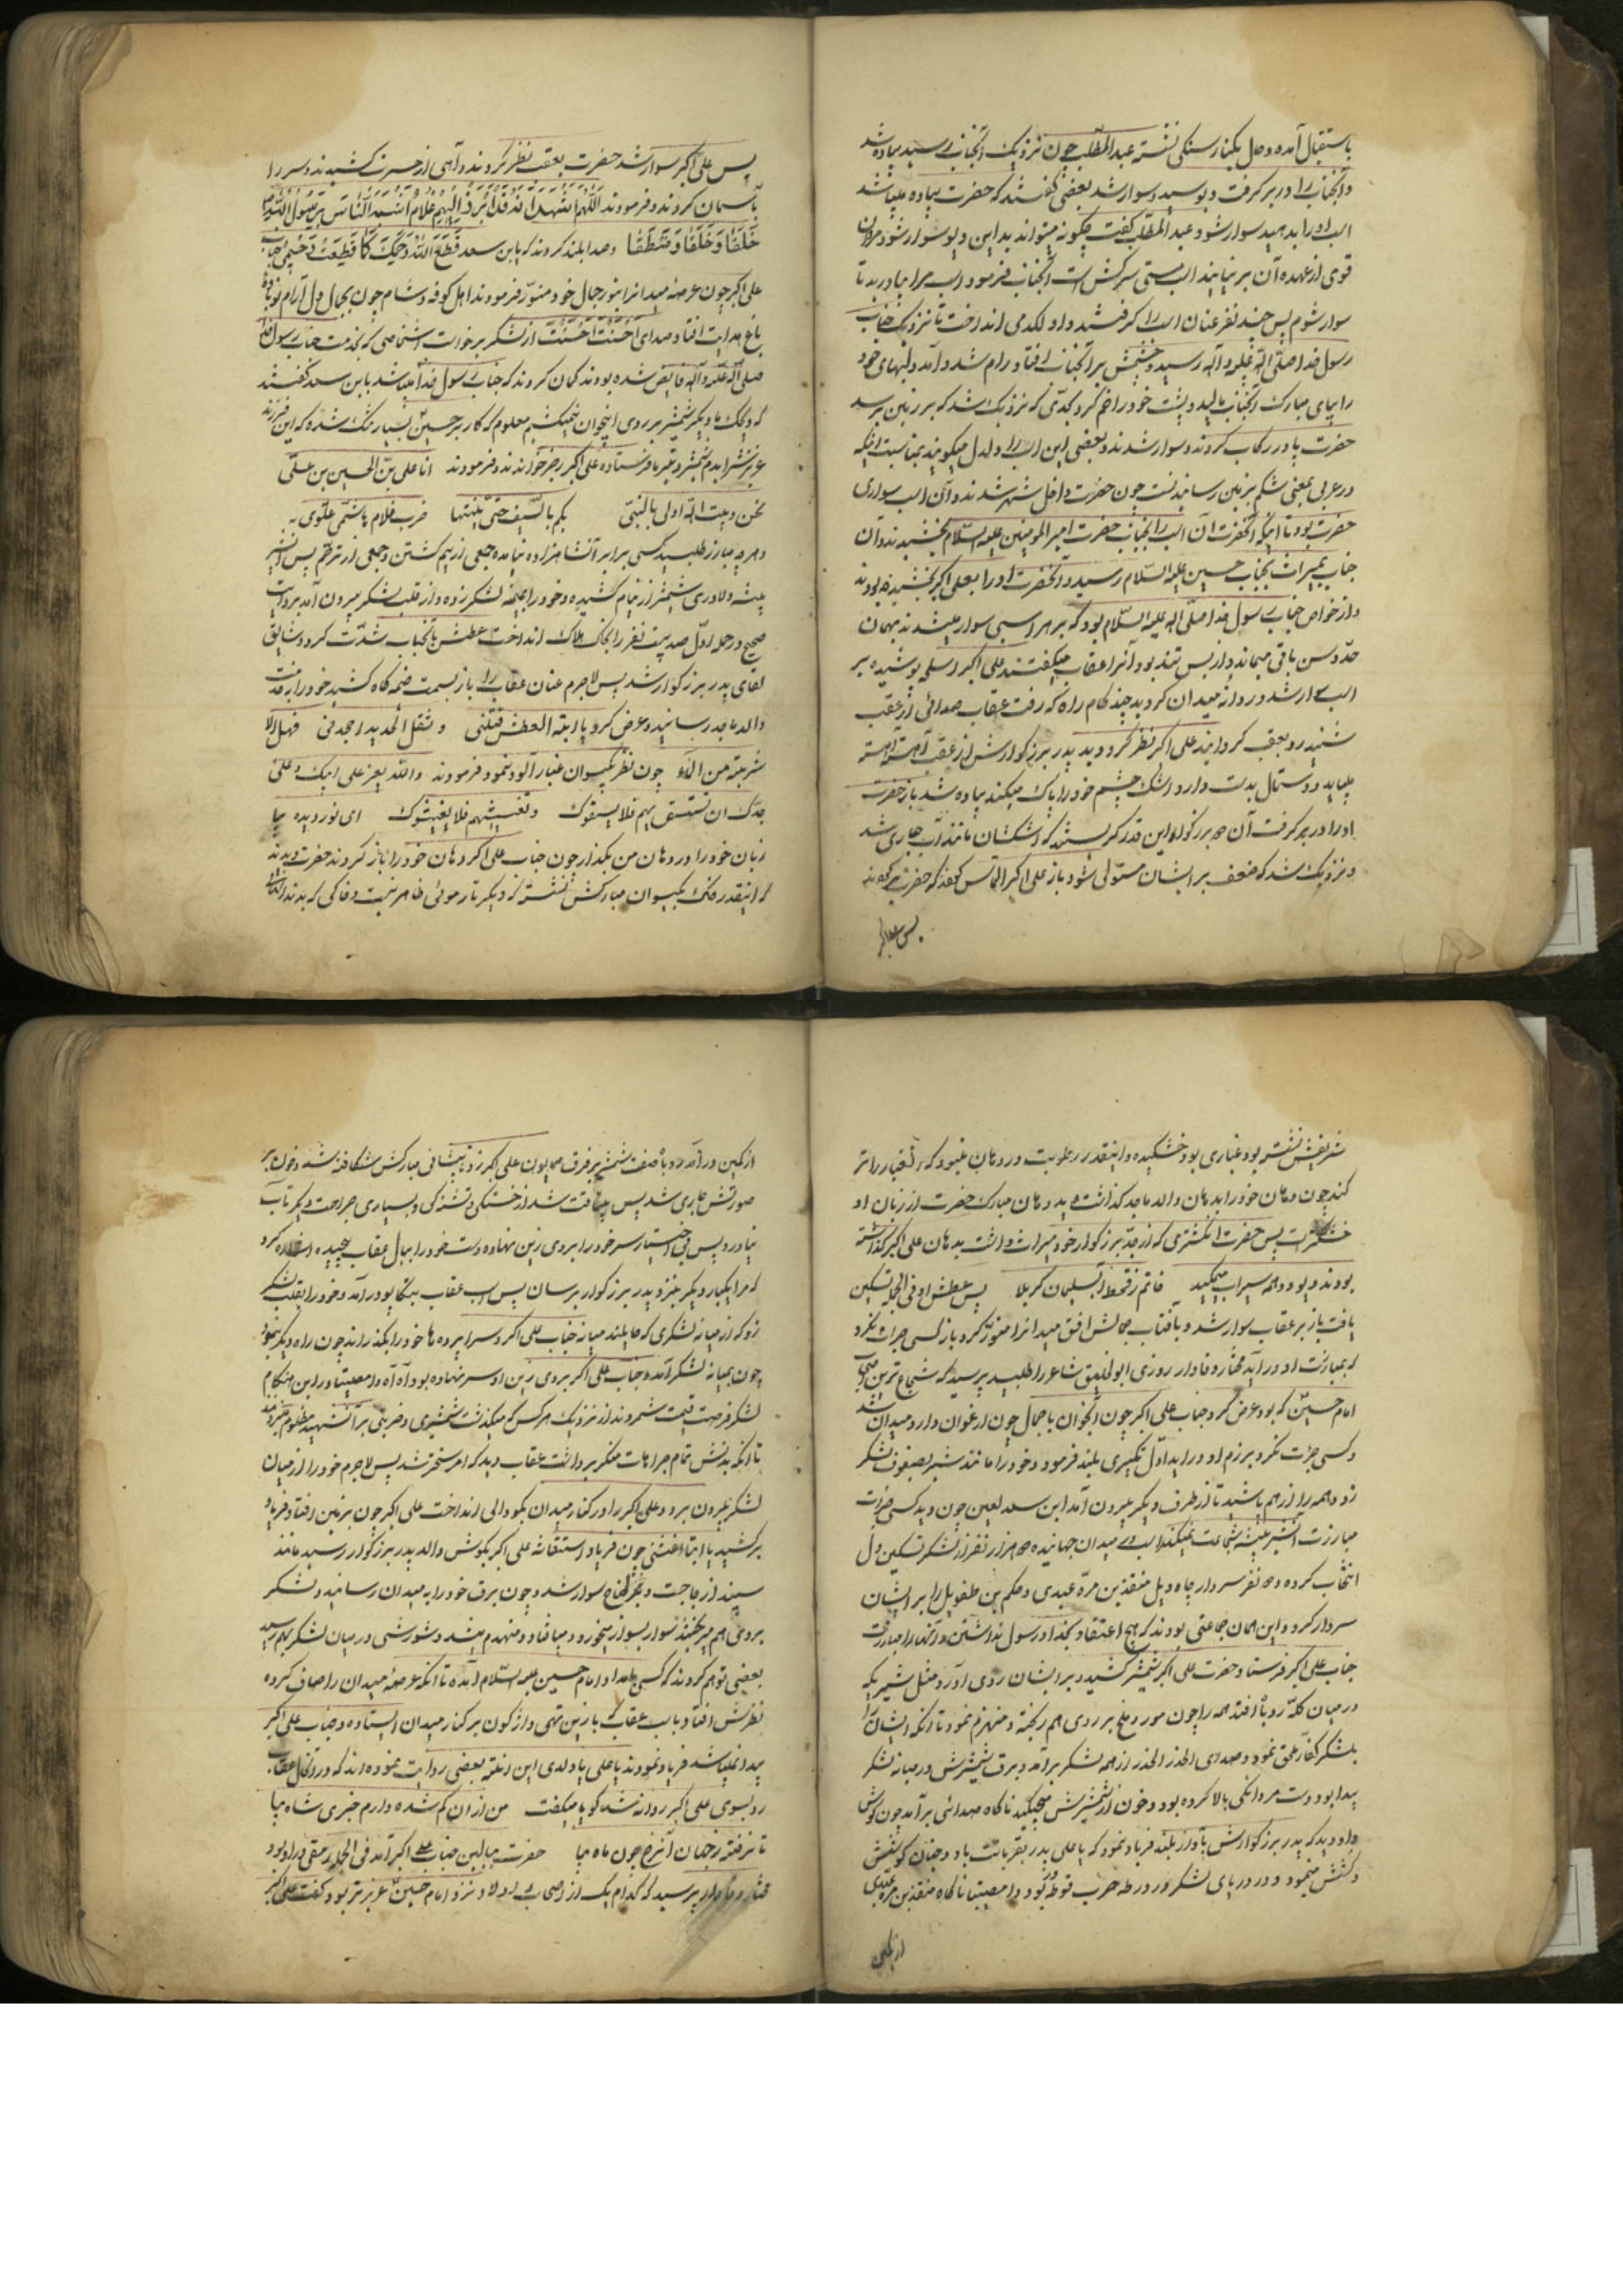 باستقبال آمده و حل بکنار سنکی نشسته عبدالمطلب چون نزدیک آنجناب رسید پیاده شد
و آنجناب را در بر کرفت و بوسید و سوار شد بعضی کفتند که حضرت پیاده میباشد
اسب او را بدهید سوار شود عبدالمطلب کفت چکونه میتواند بد این دیو سوار شود مردان
قوی از عهده آن بر نمیایند اسب مستی سرکش است آنجناب فرمود اسب مرا بیاورید تا
سوار شوم پس چند نفر عنان اسب را کرفتند و او لکد می انداخت تا نزدیک جناب
رسول خدا صلی الله علیه و آله رسید چشمش بر آنجناب افتاد و رام شد و آمد و لبهای خود
را بپای مبارک آنجناب مالید و پشت خود را خم کرد بحدی که نزدیک شد که بر زمین برسد
حضرت پا در رکاب کردند و سوار شدند و بعضی این اسب را دلدل میکویند بمناسبت اینکه
در عربی بمعنی شکم بزمین رسانیدنست چون حضرت داخل شهر شدند و آن اسب سواری
حضرت بود تا اینکه آنحضرت آن اسب را بجناب حضرت امیرالمومنین علیه السلام بخشیدند و آن
جناب بمیراث بجناب حسین علیه السلام رسید و آنحضرت او را بعلی اکبر بخشیده بودند
و از خواص جناب رسول خدا صلی الله علیه السلام بود که بر هر اسبی سوار میشدند بهمان
حد و سن باقی میماند و از بس تند بود آنرا عقاب میکفتند علی اکبر اسلحه پوشیده بر
اسب سوار شد و روانه میدان کردید چند کام راه که رفت عقاب صدائی از عقب
شنید رو بعقب کردانید علی اکبر نظر کرد و دید پدر بزرکوارش از عقب آهسته آهسته
میاید و دستمال بدست دارد و اشک چشم خود را پاک میکند پیاده شد باز حضرت
او را در بر کرفت آن دو بزرکوار این قدر کریستند که اشکشان مانند آب جاری شد
و نزدیک شد که ضعف بر ایشان مستولی شود باز علی اکبر التماس کردند که حضرت
پس علی اکبر
پس علی اکبر سوار شد حضرت بعقب نظر کردند و آهی از حسرت کشیدند و سر را
بآسمان کردند و فرمودند اللهم اشهد انه قد برز الیهم غلام اشبه الناس برسول الله
خلقا و خلقا و منطقا و صدا بلند کردند که یابن سعد قطع الله رحمک کما قطعت رحمی جناب
علی اکبر چون عرصه میدانرا بنور جمال خود منور فرمودند اهل کوفه و شام چون بجمال دل آرام نوباوه
باغ هدایت افتاد صدای احسنت احسنت از لشکر برخواست اشخاصی که بخدمت جناب رسول خدا
صلی الله علیه و آله فایض شده بودند کمان کردند که جناب رسول خدا میباشد بابن سعد کفتند
که ویحک ما دیکر شمشیر بر روی اینجوان نمیکشیم معلوم که کار بر حسین بسیار تنک شده که این فرزند
عزیزش را بدم شمشیر و تیر ما فرستاده علی اکبر رجز خواندند و فرمودند انا علی بن الحسین بن علی
نحن و بیت الله اولی بالنبی بکم بالسیف حتی یثنیها ضرب غلام هاشمی علوی
و هر چه مبارز طلبید کسی برابر آنشاهزاده نیامده جمعی از بیم کشتن و جمعی از ترحم پس آنشیر
بیشه دلاوری شمشیر از نیام کشیده و خود را بمیمنه لشکر زده و از قلب لشکر بیرون آمد بروایت
صحیح در حمله اول صد بیست نفر را بخاک هلاک انداخت عطش بآنجناب شدت کرد و شایق
لقای پدر بزرکوار شد پس لاجرم عنان عقاب را باز بسمت خیمه کاه کشید خود را بخدمت
والد ماجد رسانید و عرض کرد یا ابة العطش قتلنی و ثقل الحدید اجهدنی فهل الی
شربة من الماء چون نظر بکیسوان غبار آلود نمود فرمودند والله یعز علی ابیک و علی
جدک ان تستسقی بهم فلا یسقوک و تغیثهم فلا یغیثوک ای نور دیده بیا
زبان خود را در دهان من بکذار چون جناب علی اکبر دهان خود را باز کردند حضرت دیدند
که اینقدر خاک بکیسوان مبارکش نشسته که دیکر تار موئی ظاهر نیست و خاکی که بدندانهای
شریفش نشسته بود غباری بود خشکیده و اینقدر رطوبت در دهان نبود که غبار را تر
کند چون دهان خود را بدهان والد ماجد کذاشت دید دهان مبارک حضرت از زبان او
خشکتر است پس حضرت انکشتری که از جد بزرکوار خود میراث داشت بدهان علی اکبر کذاشته
بودند دیو و دد همه سیراب میمکید خاتم ز قحط آب سلیمان کربلا پس عطش او فی الجمله تسکین
یافت باز بر عقاب سوار شد و بآفتاب جمالش افق میدانرا منور کرد باز کسی جرات نکرد
که بمبارزت او در آید مختار وفادار روزی ابوالخلیق شاعر را طلبید پرسید که شجاع ترین اصحاب
امام حسین که بود عرض کرد جناب علی اکبر چون آنجوان با جمال چون ارغوان وارد میدان شد
و کسی جرات نکرد برزم او در آید اول تکبیری بلند فرمود و خود را مانند شیر بصفوف لشکر
زد و همه را از هم پاشید تا از طرف دیکر بیرون آمد ابن سعد لعین چون دید کسی جرات
مبارزت آنشیر بیشه شجاعت نمیکند اسب در میدان جهانیده دو هزار نفر از لشکر سنکین دل
انتخاب کرده و دو نفر سردار منقذ بن مره عبدی و حکم بن طفیل را بر ایشان
سردار کرد و این همان جماعتی بودند که هیچ اعتقاد بخدا و رسول نداشتند و آنها را بمبارزت
جناب علی اکبر فرستاد حضرت علی اکبر شمشیر کشید و بر ایشان روی آورد مثل شیریکه
در میان کله روباه افتد همه را چون مور و ملخ بر روی هم ریخته و منهزم نمود تا آنکه ایشان را
بلشکر کفار ملحق نمود و صدای الحذر الحذر از همه لشکر برآمد و برق شمشیرش در میانه لشکر
پیدا بود و دست مردانکی بالا کرده بود و خون از شمشیرش میچکید ناکاه صدائی برآمد چون کوش
داد دید که پدر بزرکوارش بآواز بلند فریاد نمود که یا علی پدر بقربانت باد و چنان کوشش
و کشش مینمود و در دریای لشکر و در ورطه حرب غوطه ور بود وا مصیبتا ناکاه منقذ بن مره عبدی
از کمین
از کمین درآمد و بآن صفت شمشیر بر فرق همایون علی اکبر زد تا پیشانی مبارکش شکافته شد و خون بر
صورتش جاری شد پس بیطاقت شد از خستکی و تشنه کی و بسیاری جراحت دیکر تاب
نیاورد پس بی اختیار سر خود را بروی زین نهاده دست خود را بیال عقاب پیچیده اشاره کرد
که مرا یکبار دیکر بنزد پدر بزرکوار برسان پس اسب عقاب بتکاپو درآمد و خود را بقلب لشکر
زد که از میانه لشکری که حایلند میانه جناب علی اکبر و سراپرده ها خود را بکذراند چون راه دیکر نبود
چون بمیانه لشکر آمد و جناب علی اکبر بروی زین او سر نهاده بود آه آه وا مصیبتا در این هنکام
لشکر فرصت غنیمت شمردند از نزدیک هر کس که میکذشت شمشیری و ضربتی بر آنشهید مظلوم میزدند
تا آنکه بدنش تمام جراحات منکر برداشت عقاب دید که امر سخت شد پس لاجرم خود را از میان
لشکر بیرون برد و علی اکبر را در کنار میدان بکودالی انداخت علی اکبر چون بزمین افتاد فریاد
برکشید یا ابتا اغثنی چون فریاد استغاثه علی اکبر بکوش والد پدر بزرکوار رسید مانند
سپند از جا جست و بذوالجناح سوار شد و چون برق خود را بمیدان رسانید و لشکر
بروی هم میریختند سوار بسوار میخورد و میافتاد و منهدم میشد و شورشی در میان لشکر بهم رسید
بعضی توهم کردند که کسی بامداد امام حسین علیه السلام آمده تا آنکه عرصه میدان را صاف کرده
نظرش افتاد باسب عقاب که با زین تهی واژکون بر کنار میدان ایستاده و جناب علی اکبر
پیدا نمیباشد فریاد نمودند یا علی یا ولدی این انت بعضی روایت نموده اند که در آنحال عقاب
رو بسوی علی اکبر روانه شد کویا میکفت من از آن کم شده دارم خبری شاه بیا
تا نرفته ز جهان آنرخ چون ماه بیا حضرت ببالین جناب علی اکبر آمد فی الجمله رمقی در او بود
مختار وفادار پرسید که کدام یک از اصحاب و اولاد نزد امام حسین عزیزتر بود کفت علی اکبر